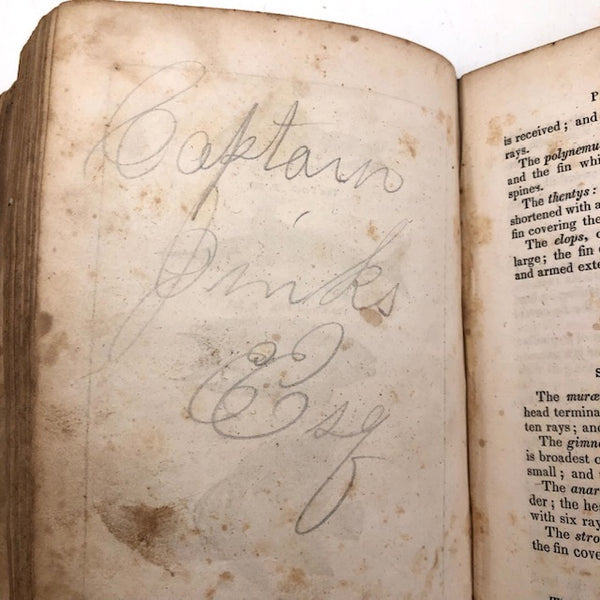 Captain
Jinks
Esq
P
is received; and
rays.
The polynemu
and the fin whi
spines.
The thentys:
shortened with a
fin covering the
The elops,
large; the fin
and armed exte
S
The muræ
head termina
ten rays; and
The gimn
is broadest
small; and
The anar
der; the he
with six ray
The stro
the fin cove